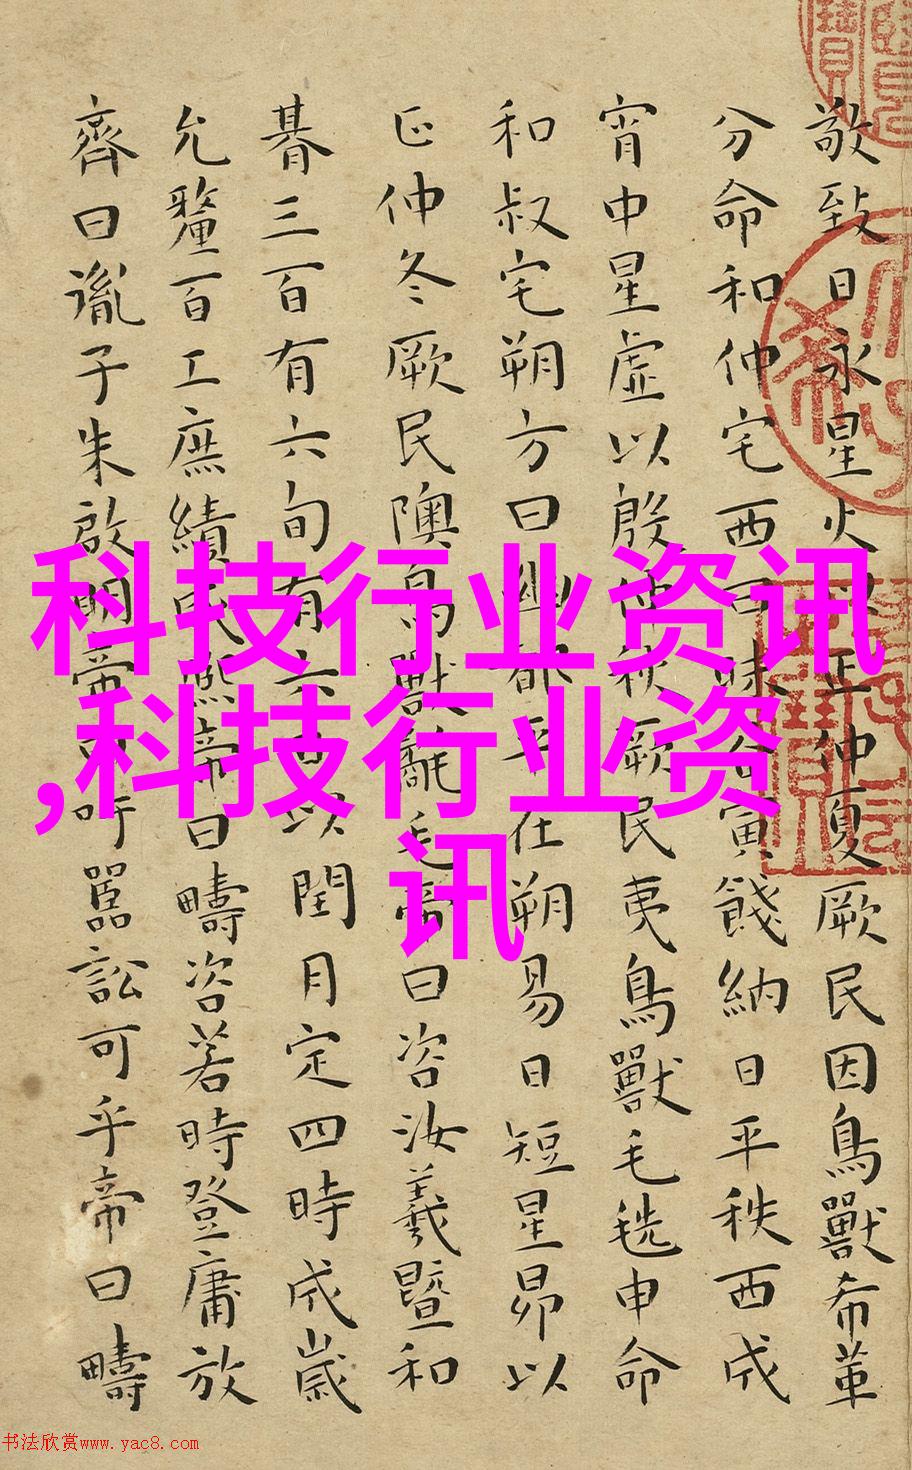 敬致日永星火以正仲夏厥民因鳥獸希革
分命和仲宅西曰昧谷寅餞納日平秩西成
宵中星虛以殷仲秋厥民夷鳥獸毛毨申命
和叔宅朔方曰幽都平在朔易日短星昴以
正仲冬厥民隩鳥獸氄毛帝曰咨汝羲暨和
朞三百有六旬有六日以閏月定四時成歲
允釐百工庶績熙帝曰疇咨若時登庸放
齊曰胤子朱啟明帝曰吁嚚訟可乎帝曰疇
科技行业资讯
,科技行业资
讯
书法欣赏www.yac8.com